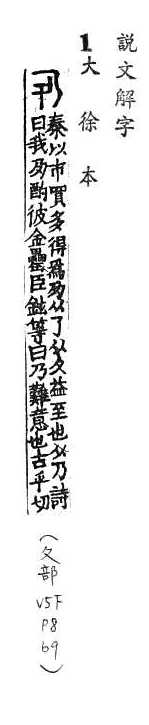 説文解字
1 大徐本
秦以市買多得爲夃从𠄎从夂益至也从乃詩
曰我夃酌彼金罍臣鉉等曰乃難意也古乎切
(夂部 V5F P8 b9)